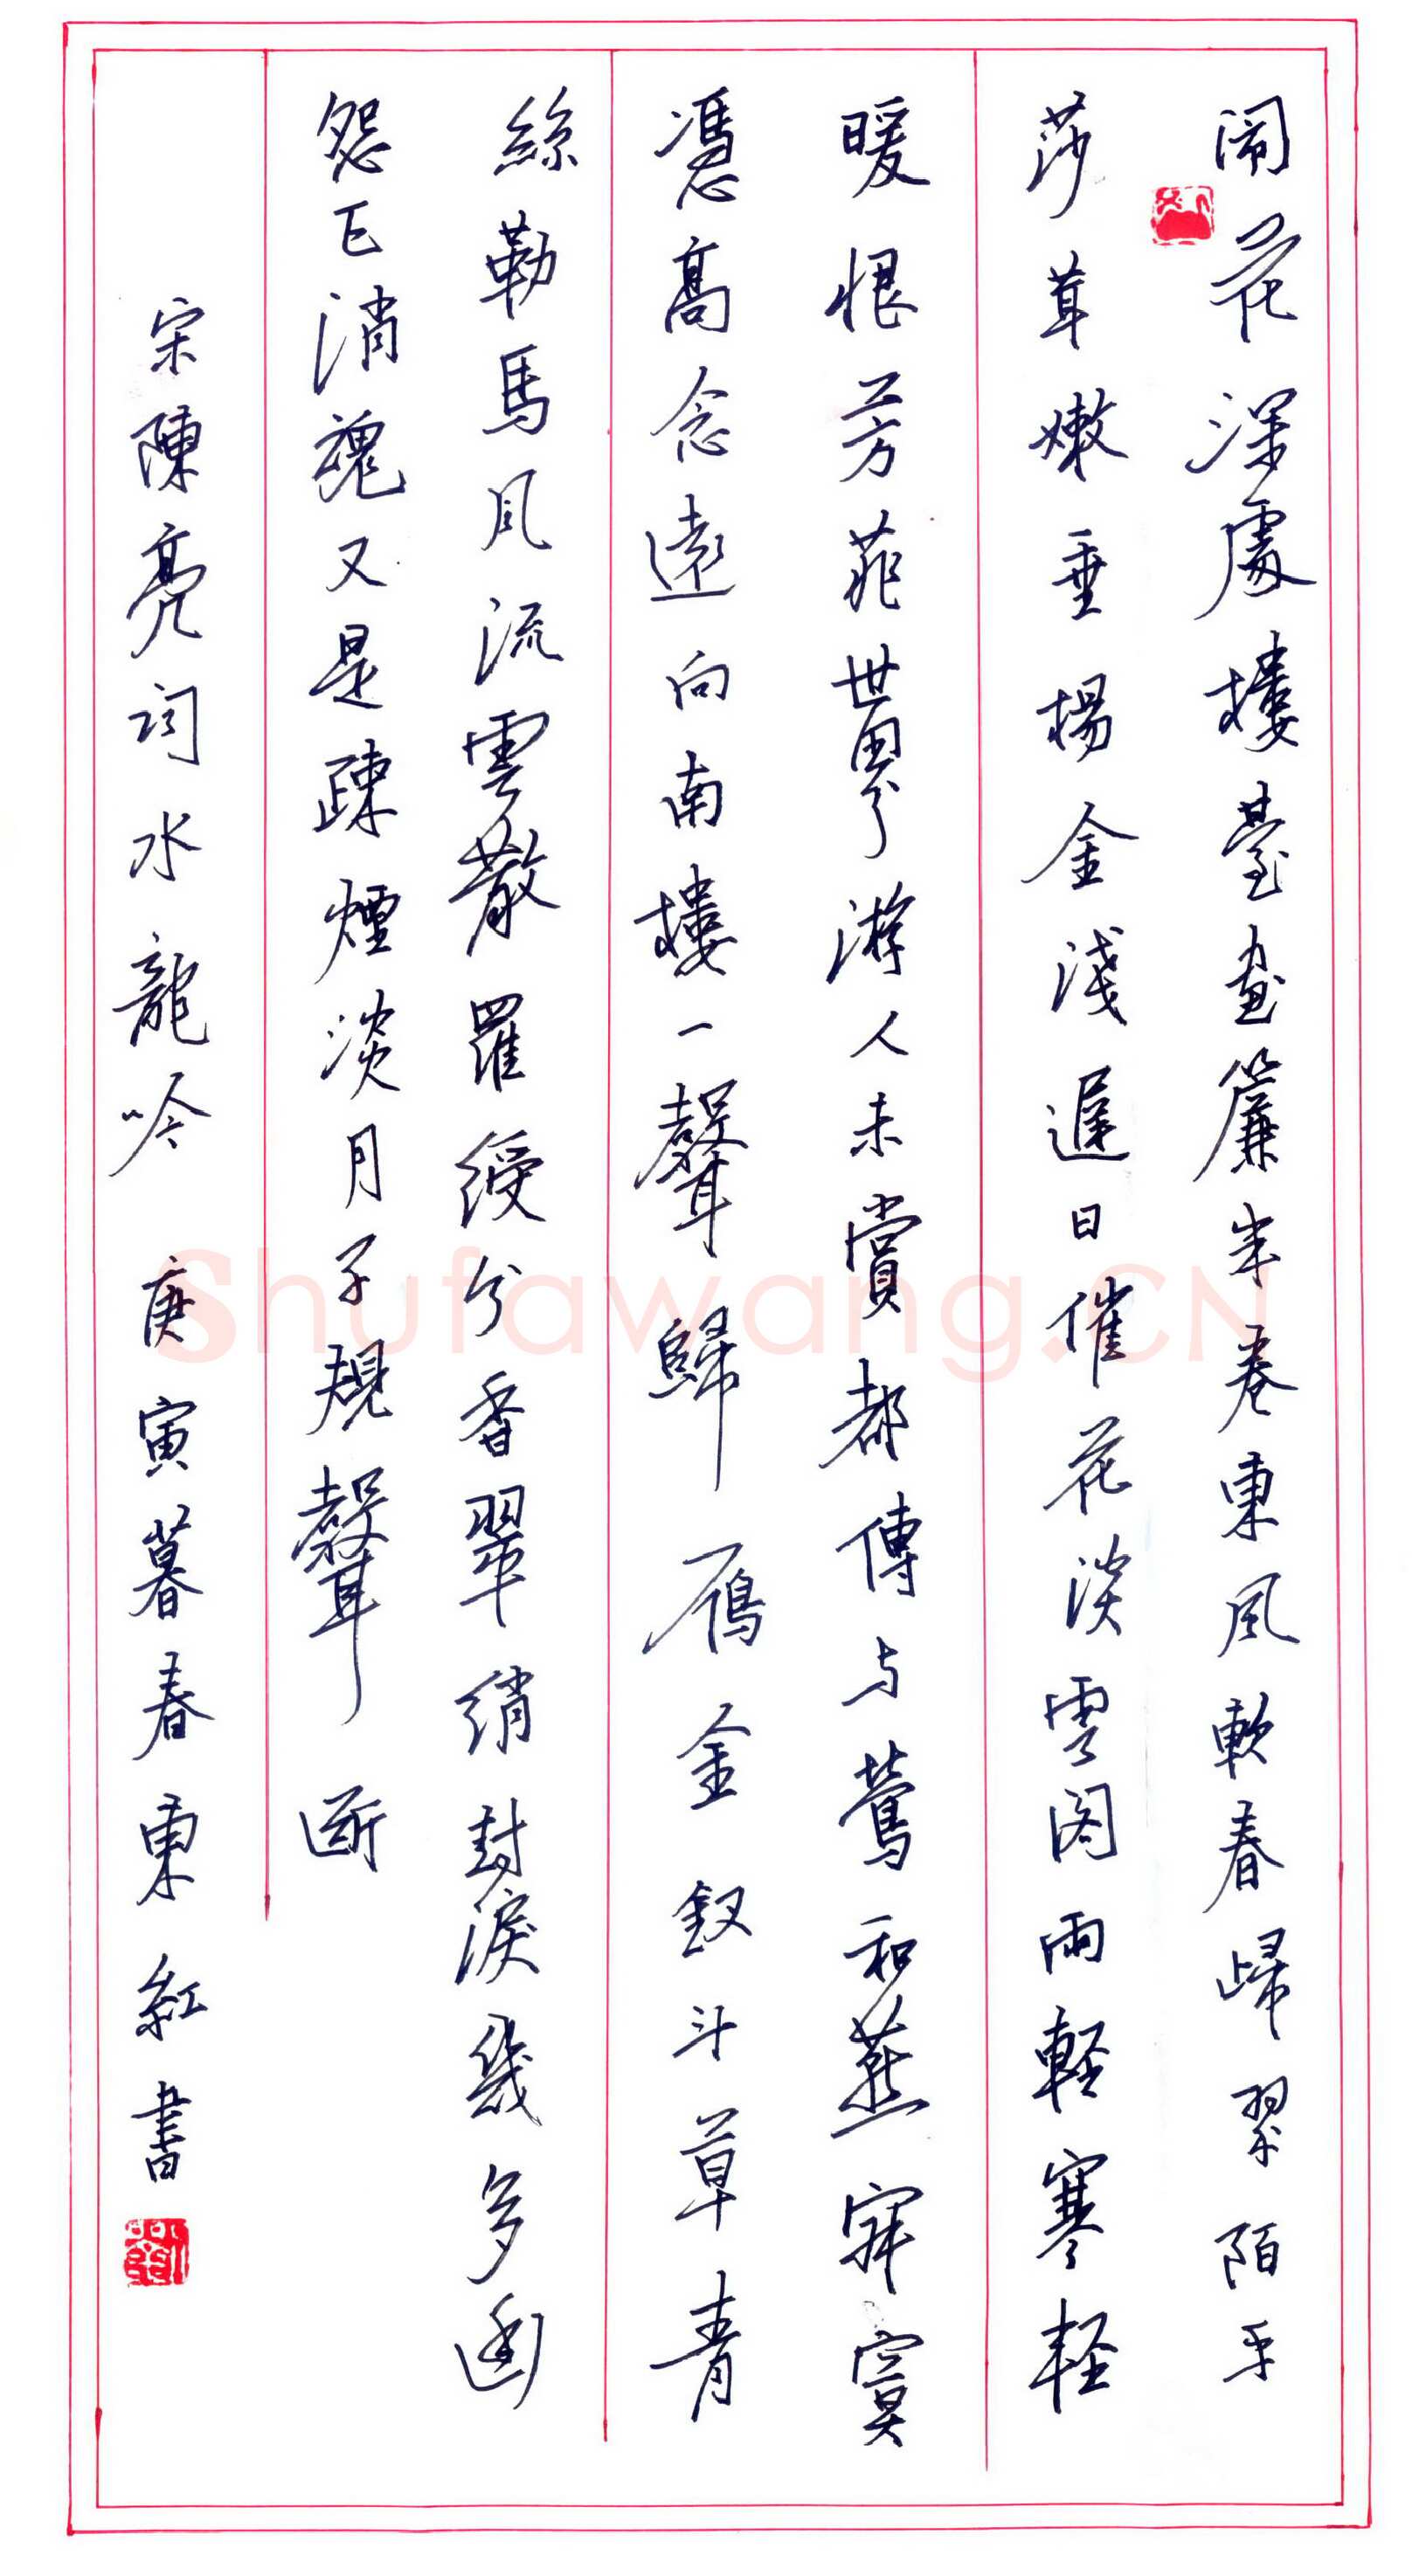 鬧花深處樓臺畫簾半卷東風軟春歸翠陌平
莎茸嫩垂楊金淺遲日催花淡雲閣雨輕寒輕
暖恨芳菲世界游人未賞都傳与鶯和燕寂寞
憑高念遠向南樓一聲歸雁金釵斗草青
絲勒馬風流雲散羅綬分香翠綃封淚幾多幽
怨正消魂又是疎煙淡月子規聲斷
宋陳亮词水龍吟 庚寅暮春東紅書
Shufawang.CN